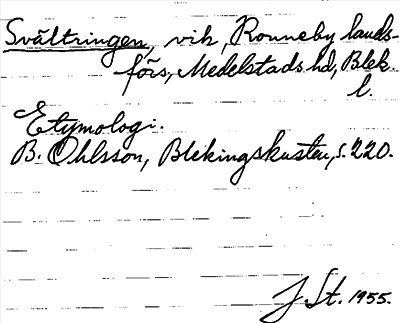 Svältringen, vik, Ronneby lands-
förs, Medelstads hd, Blek.
l.
Etymologi.
B. Ohlsson, Blekingskusten, s. 220.
J. St. 1955.